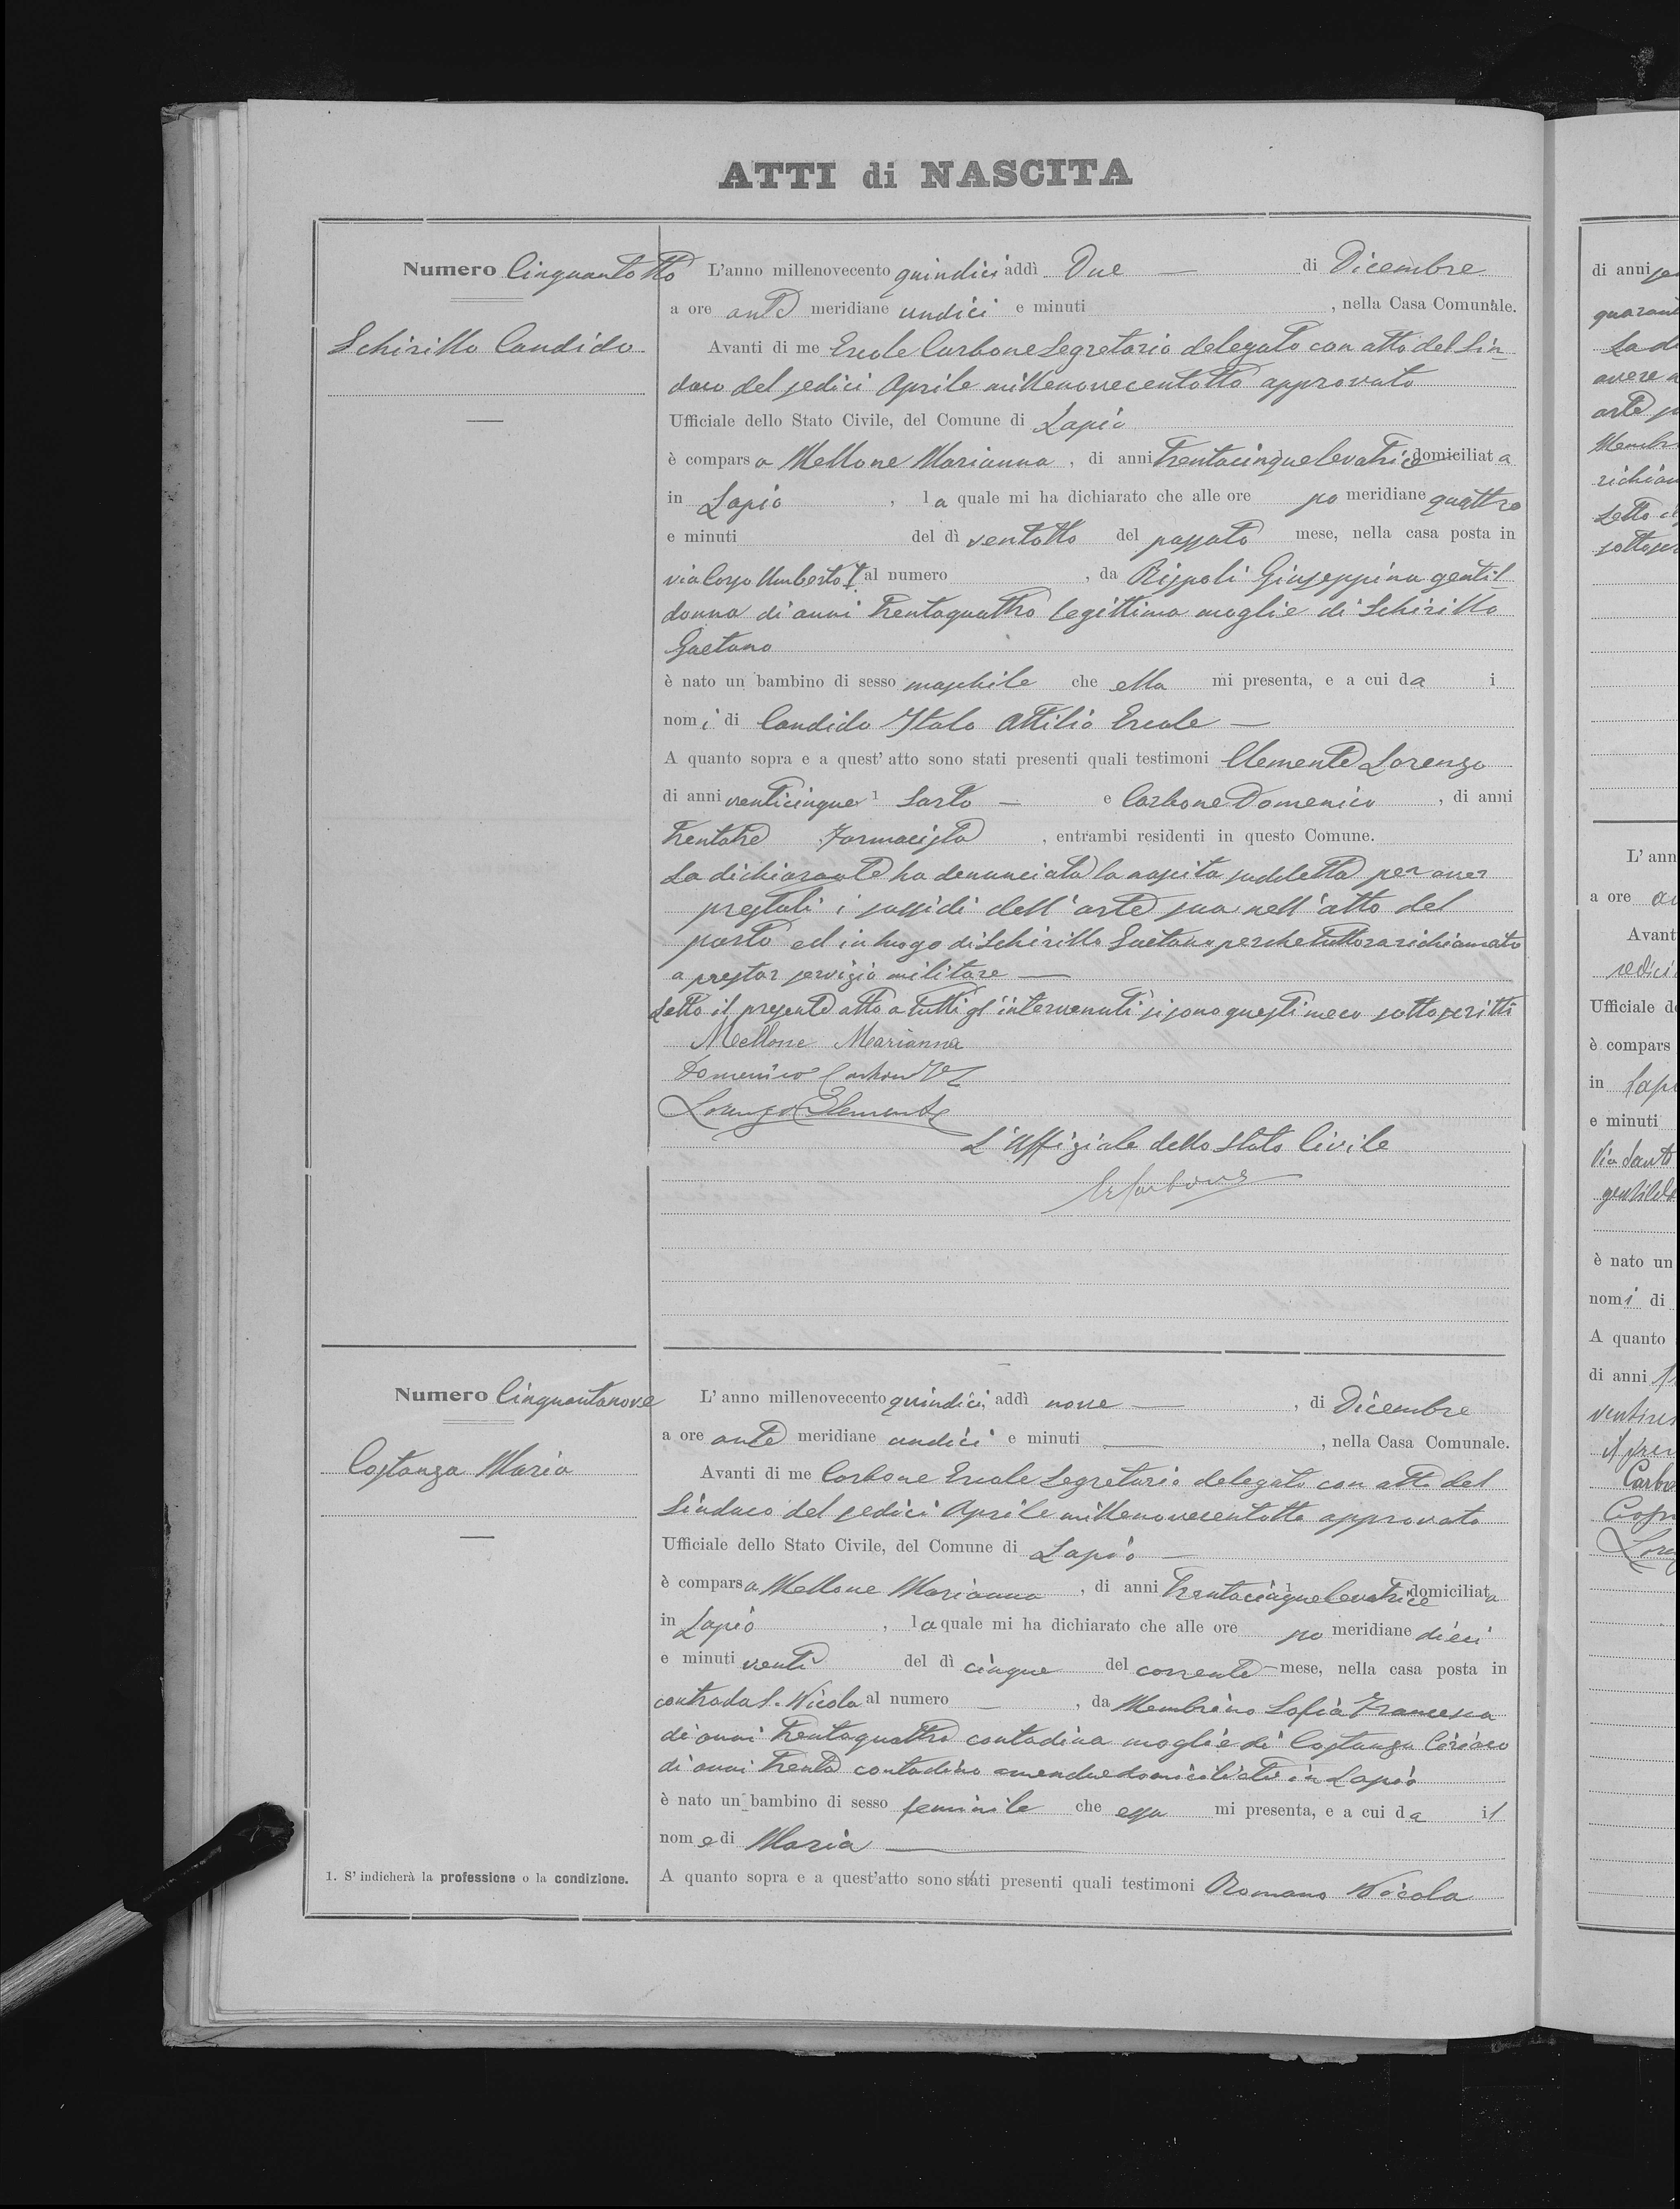 ATTI di NASCITA
Numero Cinquantotto
Schirillo Candido
L'anno millenovecento quindici addì Due — di Dicembre
a ore ante meridiane undici e minuti , nella Casa Comunale.
Avanti di me Ercole Carbone Segretario delegato con atto del Sin
daco del sedici Aprile millenovecentotto approvato
Ufficiale dello Stato Civile, del Comune di Lapio
è comparsa Mellone Marianna, di anni trentacinque levatrice domiciliata
in Lapio, la quale mi ha dichiarato che alle ore po meridiane quattro
e minuti del dì ventotto del passato mese, nella casa posta in
via Corso Umberto I al numero , da Rispoli Giuseppina gentil
donna di anni trentaquattro legittima moglie di Schirillo
Gaetano
è nato un bambino di sesso maschile che ella mi presenta, e a cui da i
nomi di Candido Italo Attilio Ercole —
A quanto sopra e a quest'atto sono stati presenti quali testimoni Clemente Lorenzo
di anni venticinque 1 Sarto — e Carbone Domenico, di anni
trentatre Farmacista, entrambi residenti in questo Comune.
La dichiarante ha denunciata la nascita suddetta per aver
prestati i sussidi dell'arte sua nell'atto del
parto ed in luogo di Schirillo Gaetano perche tuttora richiamato
a prestar servizio militare —
Letto il presente atto a tutti gl'intervenuti si sono questi meco sottoscritti
Mellone Marianna
Domenico Carbone
Lorenzo Clemente
L'Uffiziale dello Stato Civile
E Carbone
Numero Cinquantanove
Costanza Maria
L'anno millenovecento quindici, addì nove —, di Dicembre
a ore ante meridiane undici e minuti —, nella Casa Comunale.
Avanti di me Carbone Ercole Segretario delegato con atto del
Sindaco del sedici Aprile millenovecentotto approvato
Ufficiale dello Stato Civile, del Comune di Lapio —
è comparsa Mellone Marianna, di anni trentacinque 1 levatrice domiciliata
in Lapio, la quale mi ha dichiarato che alle ore po meridiane dieci
e minuti venti del dì cinque del corrente — mese, nella casa posta in
contrada S. Nicola al numero —, da Membrino Sofia Francesca
di anni trentaquattro contadina moglie di Costanza Ciriaco
di anni trenta contadino amendue domiciliati in Lapio
è nato un bambino di sesso feminile che essa mi presenta, e a cui da il
nome di Maria —
A quanto sopra e a quest'atto sono stati presenti quali testimoni Romano Nicola
1. S'indicherà la professione o la condizione.
di anni
La
L'ann
a ore
Avant
Ufficiale d
è compars
in Lapi
e minuti
Via
è nato un
nomi di
A quanto
di anni
Carbo